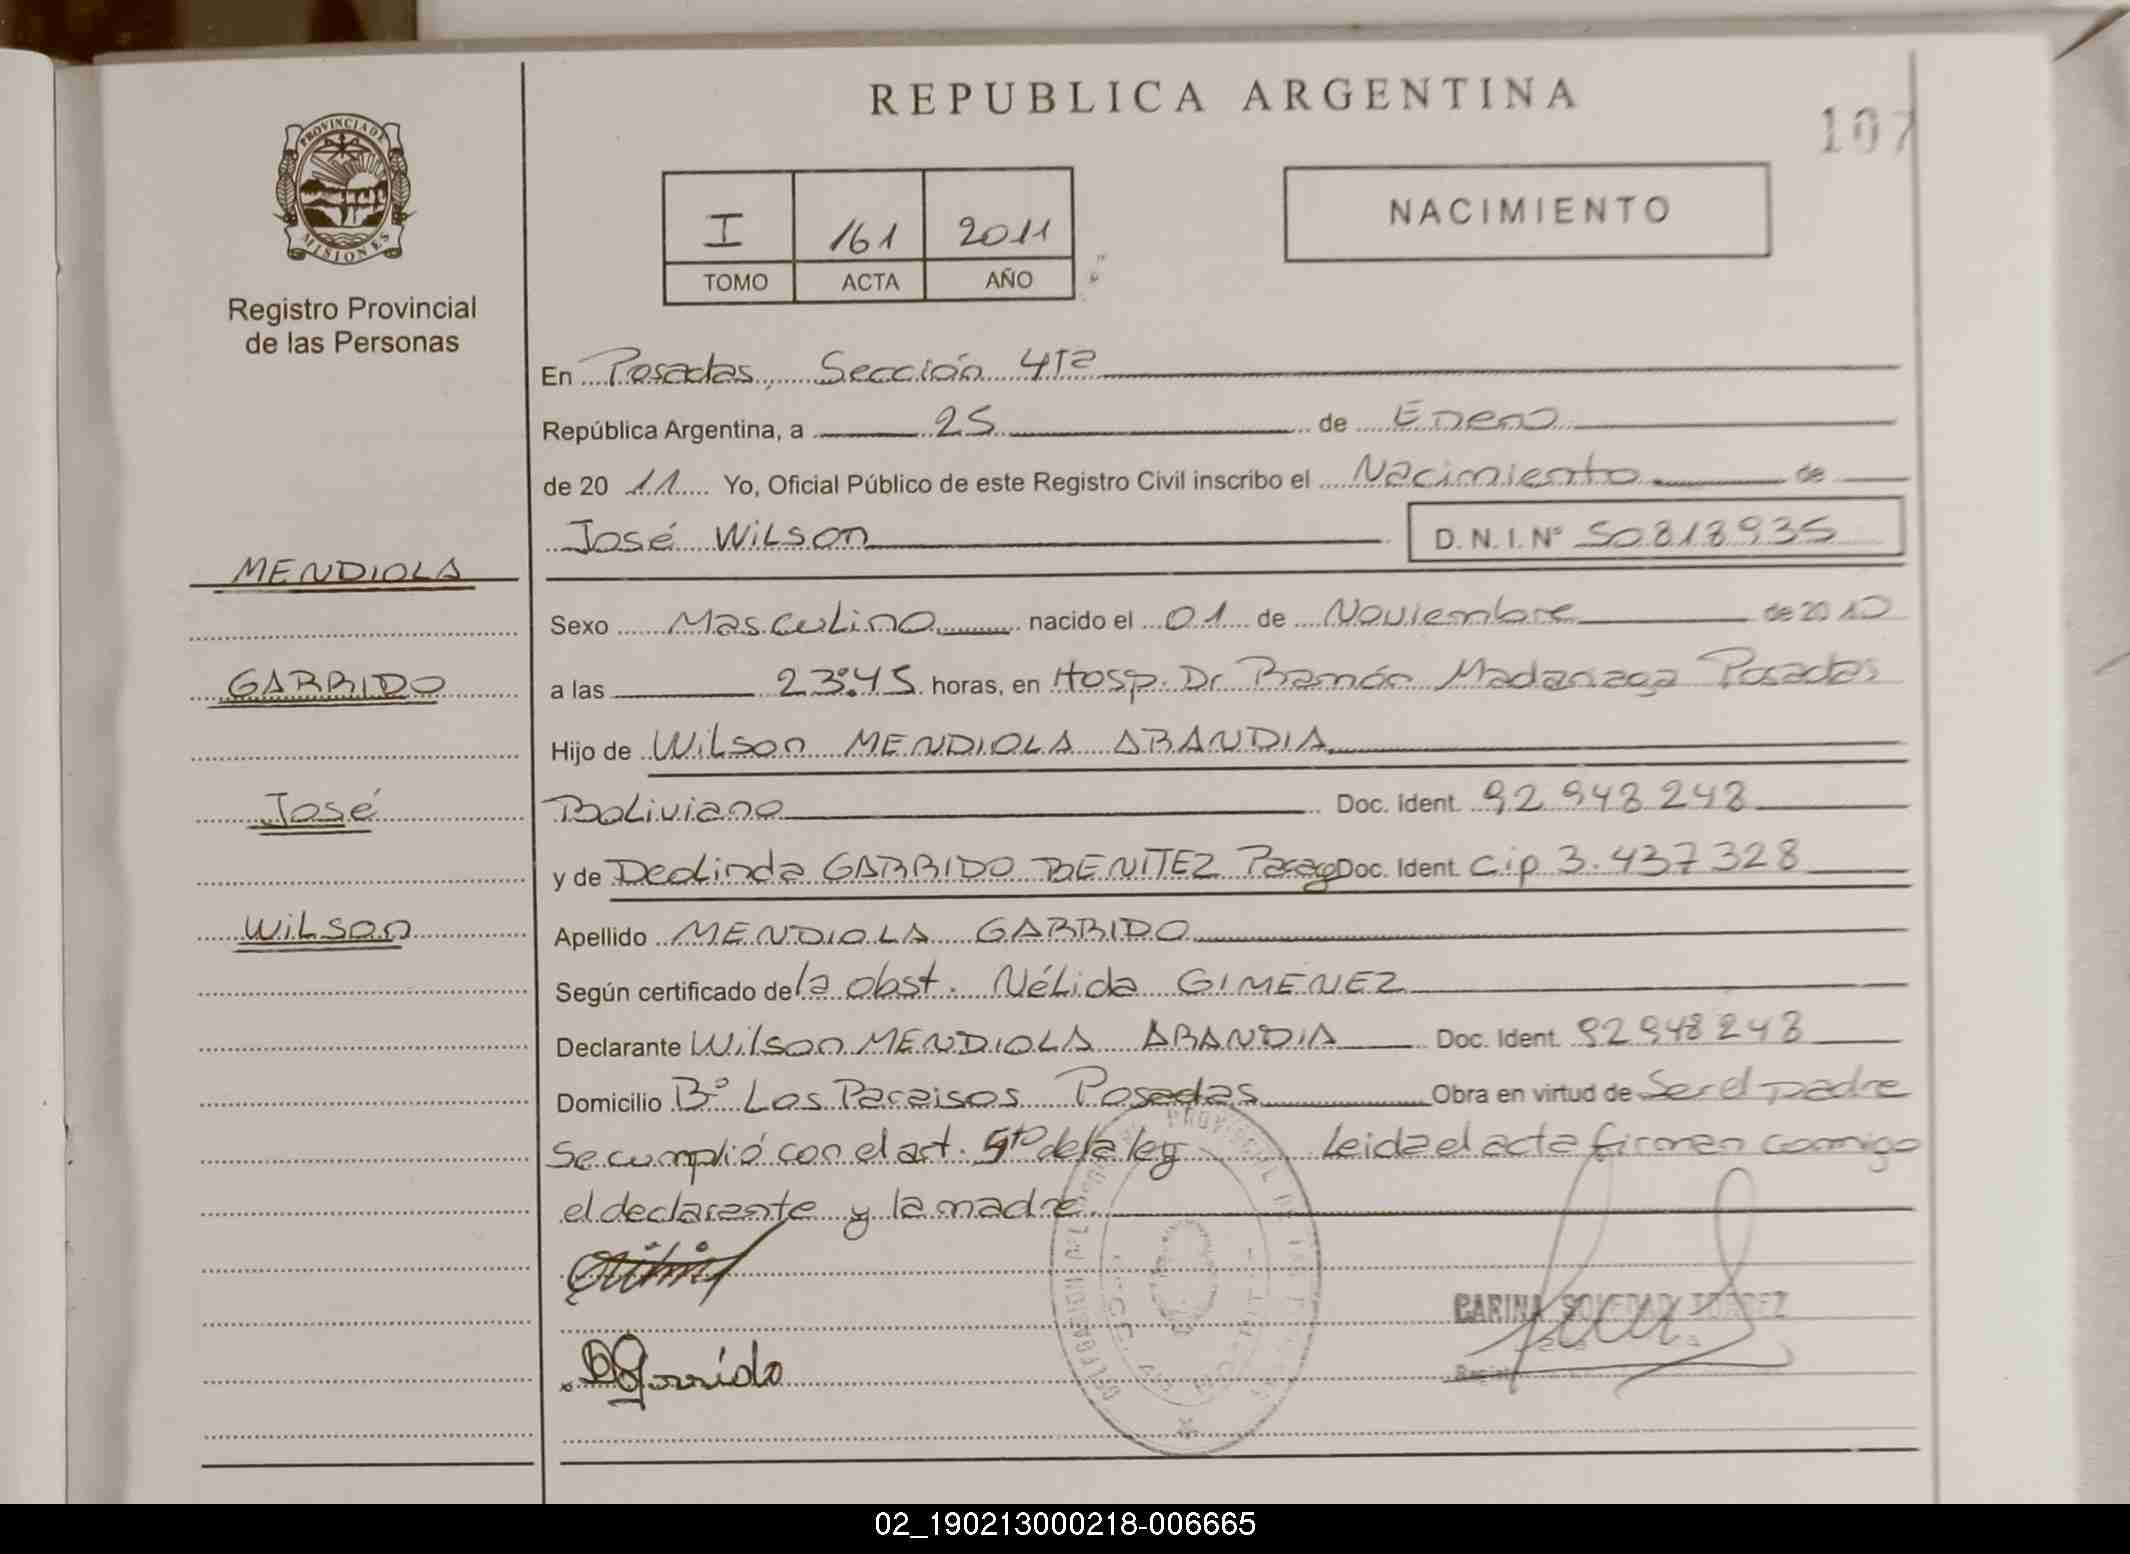 REPUBLICA ARGENTINA
107
PROVINCIA DE
MISIONES
Registro Provincial
de las Personas
I 161 2011
TOMO ACTA AÑO
NACIMIENTO
En Posadas, Sección 4ta
República Argentina, a 25 de Enero
de 20 11 Yo, Oficial Público de este Registro Civil inscribo el Nacimiento de
José Wilson D.N.I.Nº 50818935
MENDIOLA
Sexo Masculino nacido el 01 de Noviembre de 2010
GARRIDO
a las 23:45 horas, en Hosp. Dr Ramón Madariaga Posadas
Hijo de Wilson MENDIOLA ARANDIA
José
Boliviano Doc. Ident. 92 948 248
y de Deolinda GARRIDO BENITEZ Parag Doc. Ident. cip 3.437328
Wilson
Apellido MENDIOLA GARRIDO
Según certificado de la obst. Nélida GIMENEZ
Declarante Wilson MENDIOLA ARANDIA Doc. Ident. 92948248
Domicilio Bº Los Paraisos Posadas Obra en virtud de Ser el padre
Se cumplió con el art. 5to de la ley Leida el acta firman conmigo
el declarante y la madre.
CARINA SOLEDAD
DGarrido
02_190213000218-006665